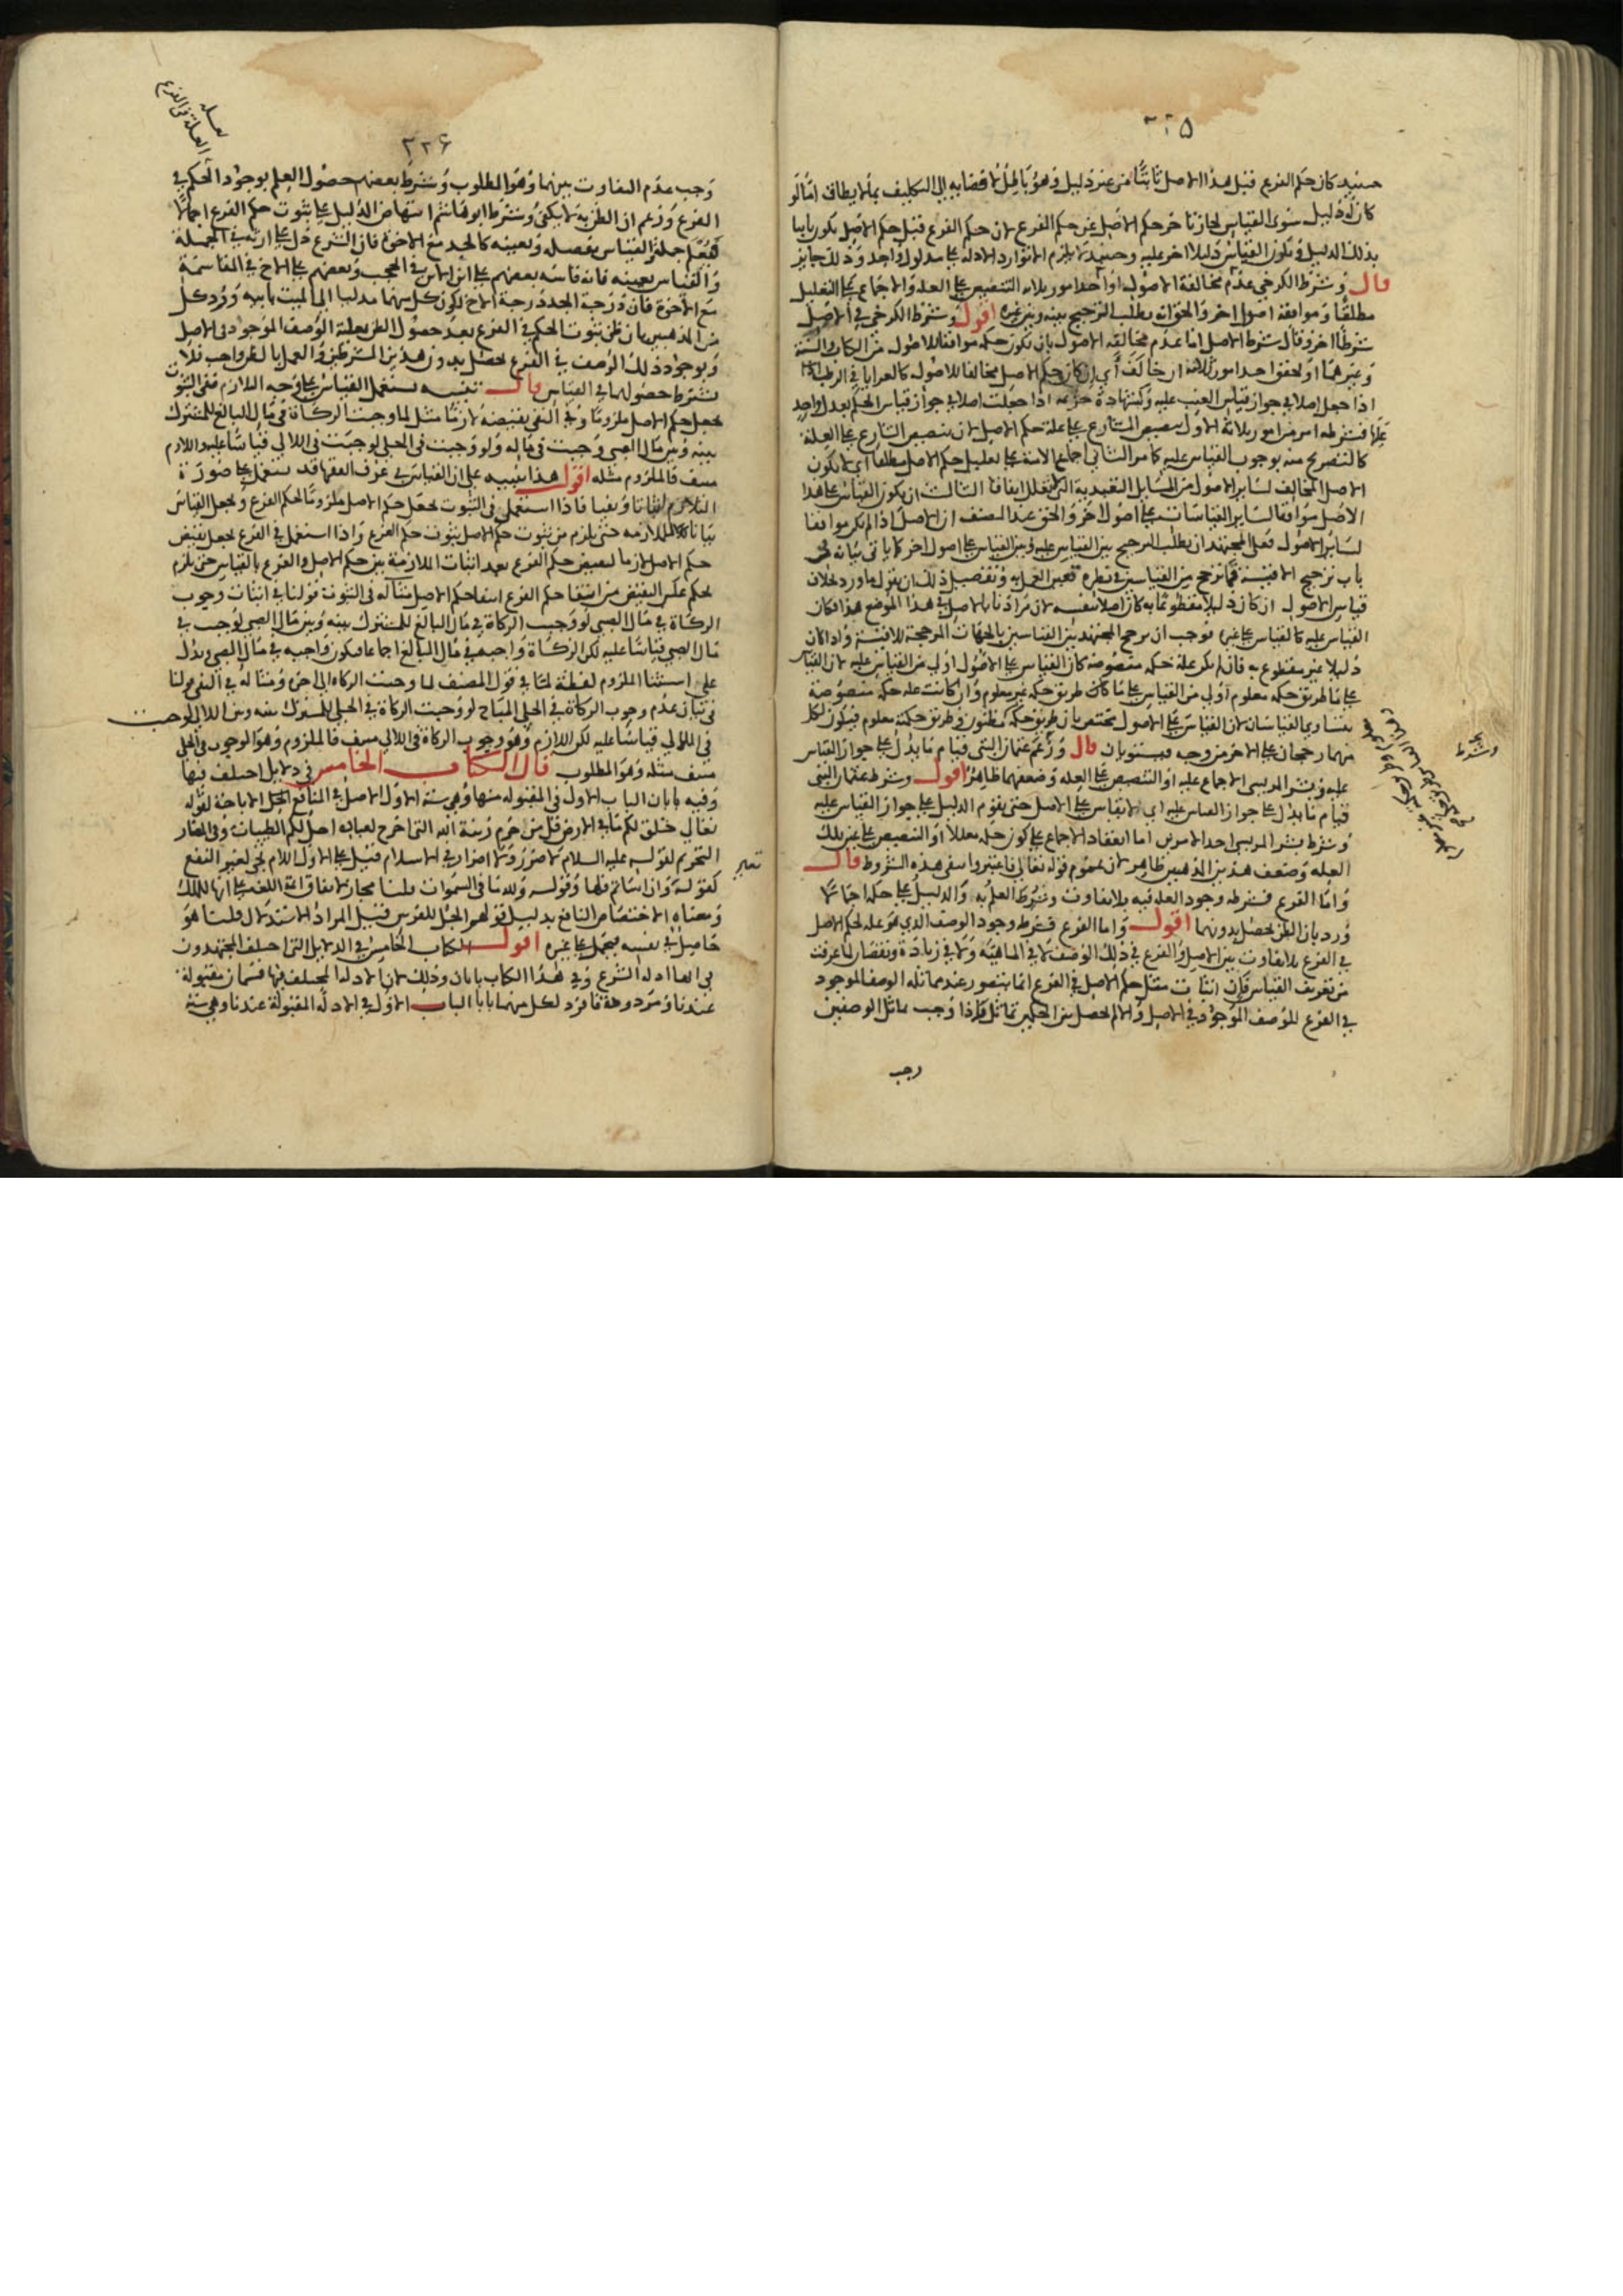 ٢٢٥
حينئذ كان حكم الفرع قبل هذا الاصل ثابتا من غير دليل وهو باطل لافضائه الى التكليف بما لا يطاق اما لو
كان له دليل سوى القياس لجاز تاخر حكم الاصل عن حكم الفرع لان حكم الفرع قبل حكم الاصل يكون ثابتا
بذلك الدليل ويكون القياس دليلا اخر عليه وحينئذ لا يلزم الا توارد الادلة على مدلول واحد وذلك جايز
قال وشرط الكرخي عدم مخالفة الاصول او احد امور ثلاثه التنصيص على العله والاجماع على التعليل
مطلقا وموافقة اصول اخر والحق انه يطلب الترجيح بينه وبين غيره اقول وشرط الكرخي في الاصل
شرطا اخر وقال شرط الاصل اما عدم مخالفه الاصول بان يكون حكمه موافقا للاصول من الكتاب والسنة
وغيرهما او تحقق احد امور ثلاثه ان خالف اي ان كان حكم الاصل مخالفا للاصول كالعرايا في الرطب
اذا جعل اصلا في جواز قياس العنب عليه وكشهادة خزيمه اذا جعلت اصلا في جواز قياس الحكم بعدل واحد
عليها فشرطه امر من امور ثلاثة الاول تنصيص الشارع على علة حكم الاصل لان تنصيص الشارع على العلة
كالتصريح منه بوجوب القياس عليه كما مر الثاني اجماع الامة على تعليل حكم الاصل مطلقا اي لا يكون
الاصل المخالف لساير الاصول من المسايل التعبدية التي لا تعلل اتفاقا الثالث ان يكون القياس على هذا
الاصل موافقا لساير القياسات على اصول اخر والحق عند المصنف ان الاصل اذا لم يكن موافقا
لساير الاصول فعلى المجتهد ان يطلب الترجيح بين القياس عليه وبين القياس على اصول اخر كما ياتي بيانه في
باب ترجيح الاقيسة فما ترجح من القياسين في نظره تعين العمل به وتفصيل ذلك ان يقول ما ورد بخلاف
قياس الاصول ان كان دليلا مقطوعا به كان اصلا بنفسه لان مرادنا بالاصل في هذا الموضع هذا فكان
القياس عليه كالقياس على غيره فوجب ان يرجح المجتهد بين القياسين بالجهات المرجحة للاقيسة واذا كان
دليلا غير مقطوع به فان لم يكن علة حكمه منصوصة كان القياس على الاصول اولى من القياس عليه لان القياس
على ما طريق حكمه معلوم اولى من القياس على ما كان طريق حكمه غير معلوم وان كانت علة حكمه منصوصة
يتساوى القياسان لان القياس على الاصول تختص بان طريق حكمه مظنون وطريق حكمته معلوم فيكون لكل
منهما رجحان على الاخر من وجه فيستويان قال وزعم عثمان البتي قيام ما يدل على جواز القياس
عليه وبشر المريسي الاجماع عليه او التنصيص على العله وضعفهما ظاهر اقول وشرط عثمان البتي
قيام ما يدل على جواز القياس عليه اي لا يقاس على الاصل حتى يقوم الدليل على جواز القياس عليه
وشرط بشر المريسي احد الامرين اما انعقاد الاجماع على كون حكمه معللا او التنصيص على عين تلك
العله وضعف هذين المذهبين ظاهر لان عموم قوله تعالى فاعتبروا ينفي هذه الشروط قال
واما الفرع فشرطه وجود العله فيه بلا تفاوت وشرط العلم به والدليل على حكمه اجمالا
ورد بان الظن يحصل بدونهما اقول واما الفرع فشرطه وجود الوصف الذي هو عله لحكم الاصل
في الفرع بلا تفاوت بين الاصل والفرع في ذلك الوصف لا في الماهية ولا في زيادة ونقصان لما عرفت
من تعريف القياس فان اثبات مثل حكم الاصل في الفرع انما يتصور عند مماثلة الوصف الموجود
في الفرع للوصف الموجود في الاصل والا لم يحصل بين الحكمين تماثل فاذا وجب تماثل الوصفين
وجب
٢٢٦
وجب عدم التفاوت بينهما وهو المطلوب وشرط بعضهم حصول العلم بوجود الحكم في
الفرع وزعم ان الظن به لا يكفي وشرط ابو هاشم انتهاض الدليل على ثبوت حكم الفرع اجمالا
والقياس بعينه فانه قاسه بعضهم على ابن الابن في الحجب وبعضهم على الاخ في المقاسمة
مع الاخوة فان درجة الجد درجة الاخ لكون كل منهما مدليا الى الميت بابيه ورد كل
من المذهبين بان ظن ثبوت الحكم في الفرع بعد حصول الظن بعلية الوصف الموجود في الاصل
وبوجود ذلك الوصف في الفرع يحصل بدون هذين الشرطين والعمل بالظن واجب فلا
يشترط حصولهما في القياس قال تنبيه يستعمل القياس على وجه التلازم ففي الثبوت
يجعل حكم الاصل ملزوما وفي النفي نقيضه لازما مثل لما وجبت الزكاة في مال البالغ للمشترك
بينه وبين مال الصبي وجبت في ماله ولو وجبت في الحلي لوجبت في اللالي قياسا عليه واللازم
منتف فالملزوم مثله اقول هذا تنبيه على ان القياس في عرف الفقها قد يستعمل على صورة
التلازم اثباتا ونفيا فاذا استعمل في الثبوت يجعل حكم الاصل ملزوما لحكم الفرع ويجعل القياس
بيانا للملازمه حتى يلزم من ثبوت حكم الاصل ثبوت حكم الفرع واذا استعمل في الفرع يجعل نقيض
حكم الاصل لازما لنقيض حكم الفرع بعد اثبات الملازمة بين حكم الاصل والفرع بالقياس حتى يلزم
بحكم عكس النقيض من انتفا حكم الفرع انتفا حكم الاصل مثاله في الثبوت قولنا في اثبات وجوب
الزكاة في مال الصبي لو وجبت الزكاة في مال البالغ للمشترك بينه وبين مال الصبي لوجبت في
مال الصبي قياسا عليه لكن الزكاة واجبه في مال البالغ اجماعا فيكون واجبه في مال الصبي ويدل
على استثنا الملزوم لفظة لما في قول المصنف لما وجبت الزكاه الى اخره ومثاله في النفي قولنا
في بيان عدم وجوب الزكاة في الحلي المباح لو وجبت الزكاة في الحلي للمشترك بينه وبين اللالي لوجبت
في اللالي قياسا عليه لكن اللازم وهو وجوب الزكاة في اللالي منتف فالملزوم وهو الوجوب في الحلي
منتف مثله وهو المطلوب قال الكتاب الخامس في دلايل اختلف فيها
وفيه بابان الباب الاول في المقبوله منها وهي ستة الاول الاصل في المنافع الحل الاباحة لقوله
تعالى خلق لكم ما في الارض قل من حرم زينة الله التي اخرج لعباده احل لكم الطيبات وفي المضار
التحريم لقوله عليه السلام لا ضرر ولا اضرار في الاسلام قيل على الاول اللام تجي لغير النفع
كقوله وان اساتم فلها وقوله ولله ما في السموات قلنا مجاز لاتفاق ائمة اللغه على انها للملك
ومعناه الاختصاص النافع بدليل قولهم الجل للفرس قيل المراد الاستدلال قلنا هو
حاصل في نفسه فيحمل على غيره اقول الكتاب الخامس في الدلايل التي اختلف المجتهدون
في انها ادلة الشرع وفي هذا الكتاب بابان وذلك لان الادلة المختلف فيها قسمان مقبولة
عندنا ومردودة فافرد لكل منهما بابا الباب الاول في الادلة المقبولة عندنا وهي ستة